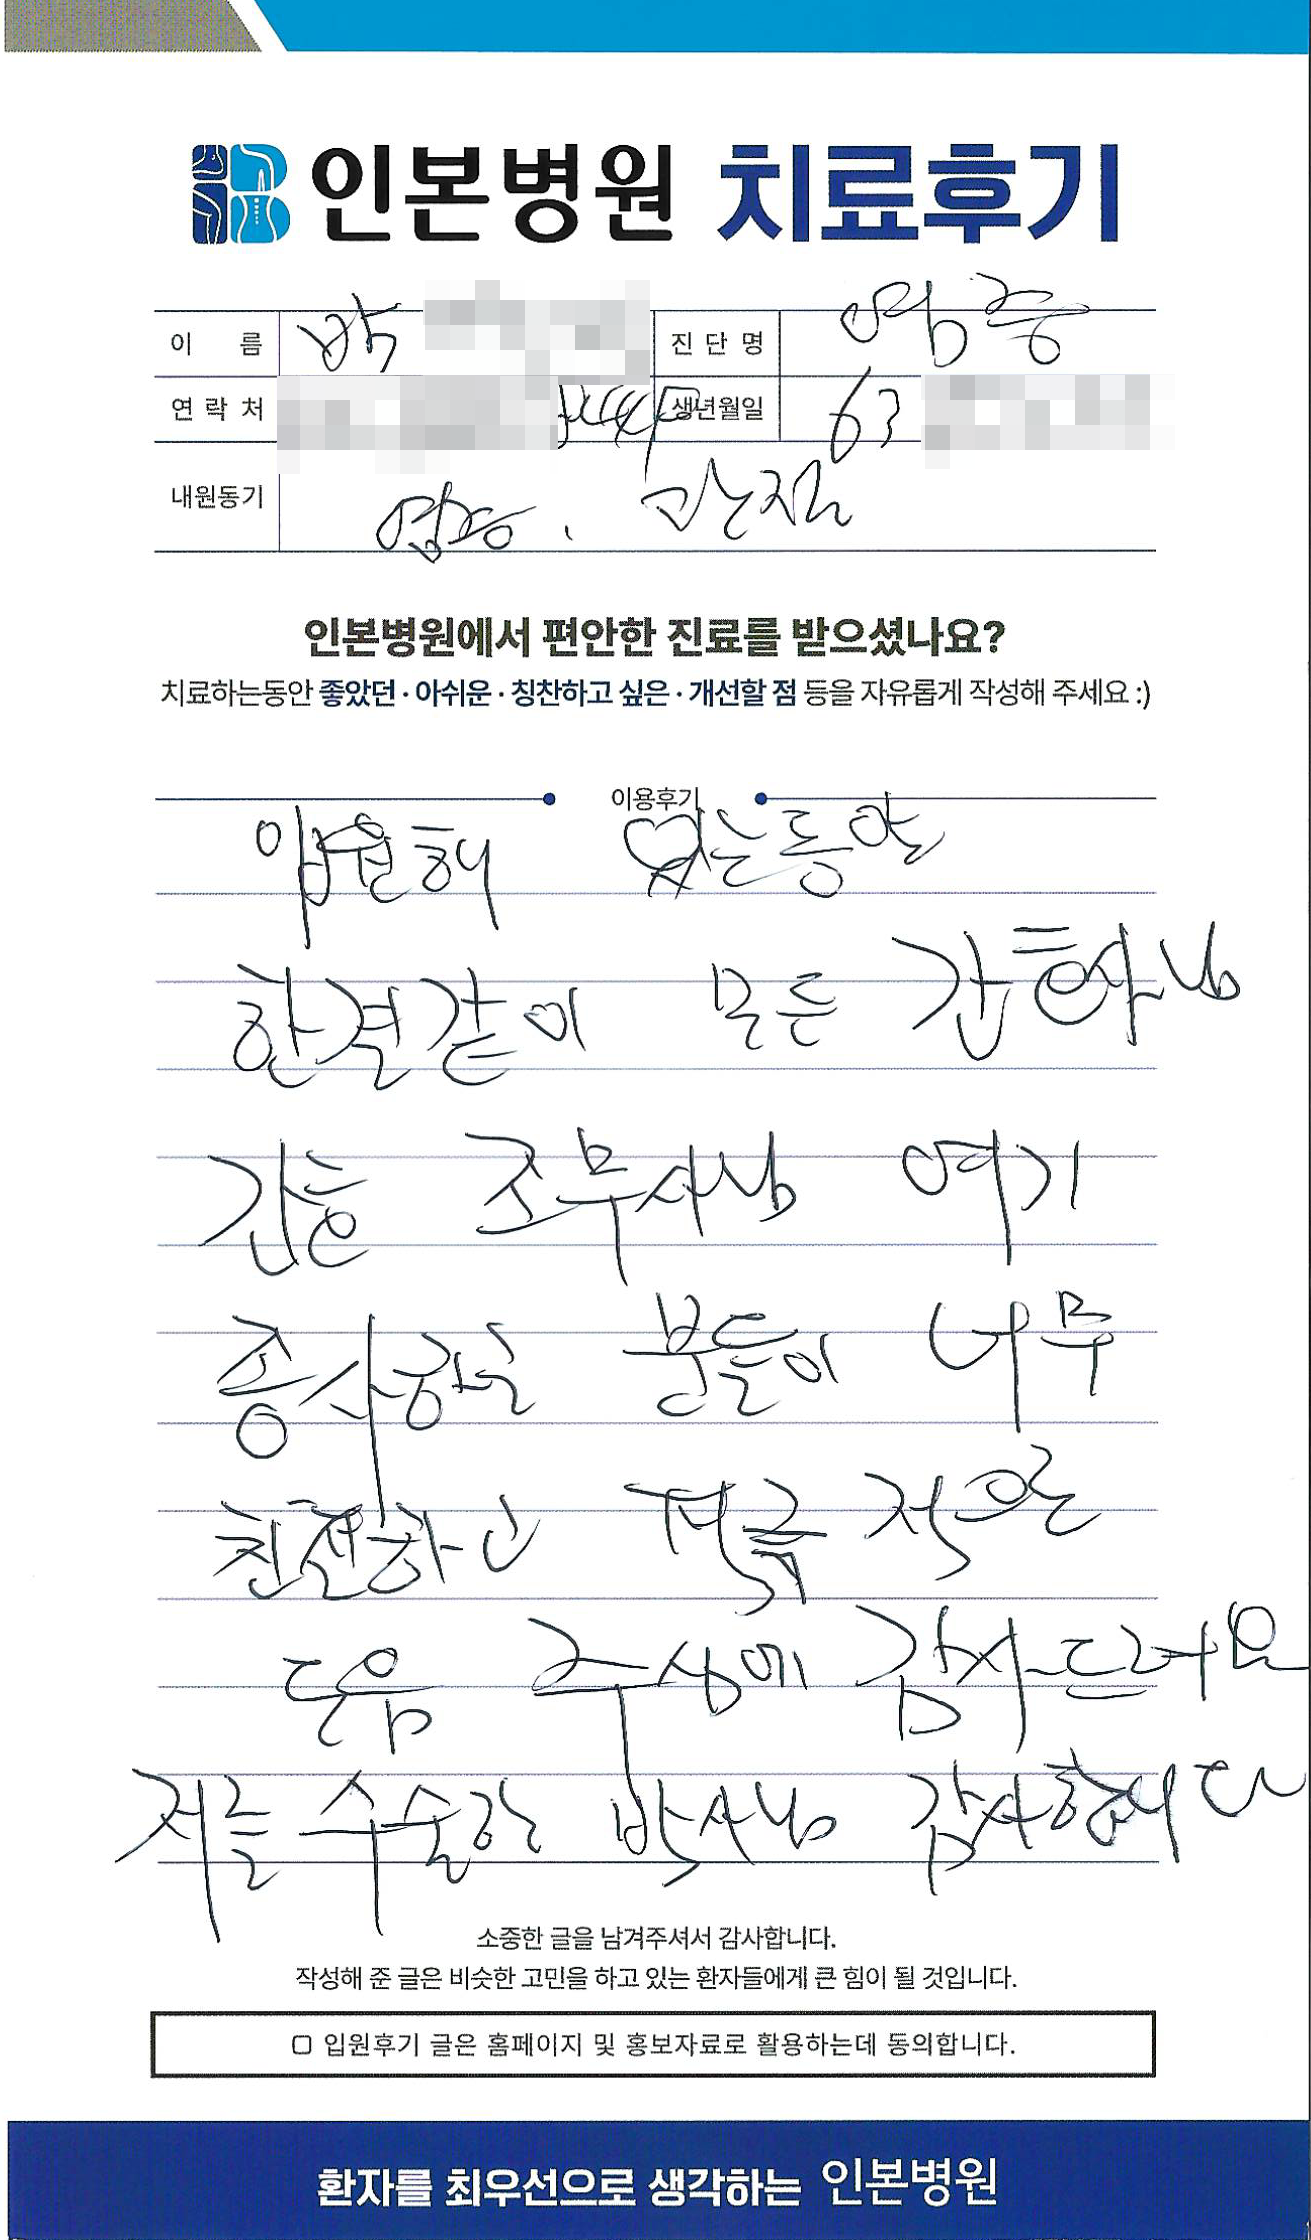 인본병원 치료후기
이 름 박
진 단 명 염증
연 락 처
생년월일 63
내원동기 염증. 관절
인본병원에서 편안한 진료를 받으셨나요?
치료하는동안 좋았던 · 아쉬운 · 칭찬하고 싶은 · 개선할 점 등을 자유롭게 작성해 주세요 :)
이용후기
입원해 있는동안
한결같이 모든 간호사님
간호 조무사님 여기
종사하는 분들이 너무
친절하고 적극적으로
도움 주심에 감사드려요
저를 수술한 박사님 감사합니다
소중한 글을 남겨주셔서 감사합니다.
작성해 준 글은 비슷한 고민을 하고 있는 환자들에게 큰 힘이 될 것입니다.
입원후기 글은 홈페이지 및 홍보자료로 활용하는데 동의합니다.
환자를 최우선으로 생각하는 인본병원